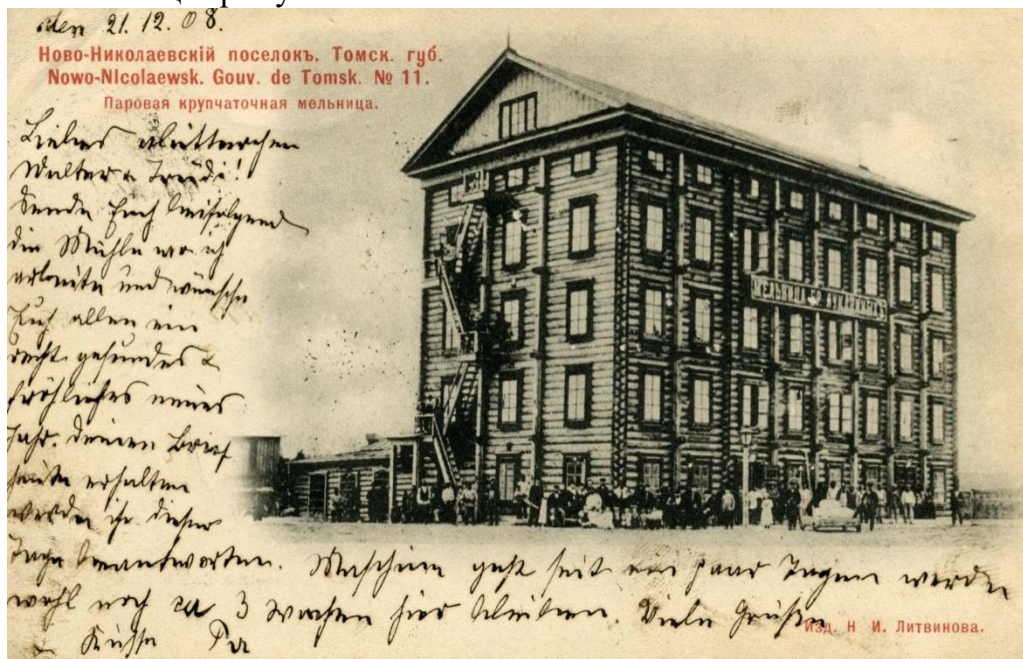 den 21. 12. 08.
Ново-Николаевскій поселокъ. Томск. губ.
Nowo-Nicolaewsk. Gouv. de Tomsk. № 11.
Паровая крупчаточная мельница.
Liebes Mütterchen
Walter & Trudi!
Sende Euch beifolgend
die Mühle wo ich
arbeite und wünsche
Euch allen ein
recht gesundes &
fröhliches neues
Jahr. Deinen Brief
heute erhalten
werde ihn dieser
Tage beantworten. Maschine geht seit ein paar Tagen werde
wohl noch ca 3 Wochen hier bleiben. Viele Grüße
& Küsse
МЕЛЬНИЦА
Изд. Н И. Литвинова.